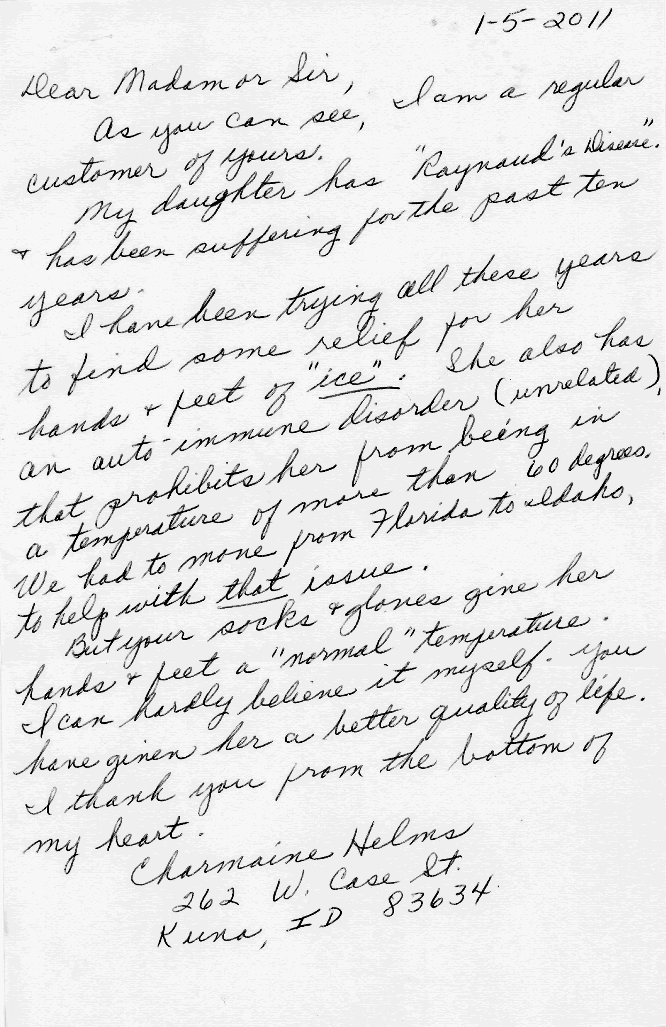 1-5-2011
Dear Madam or Sir,
As you can see, I am a regular
customer of yours.
My daughter has "Raynaud's Disease".
& has been suffering for the past ten
years.
I have been trying all these years
to find some relief for her
hands & feet of "ice". She also has
an auto-immune disorder (unrelated),
that prohibits her from being in
a temperature of more than 60 degrees.
We had to move from Florida to Idaho,
to help with that issue.
But your socks & gloves give her
hands & feet a "normal" temperature.
I can hardly believe it myself. You
have given her a better quality of life.
I thank you from the bottom of
my heart.
Charmaine Helms
262 W. Case St.
Kuna, ID 83634